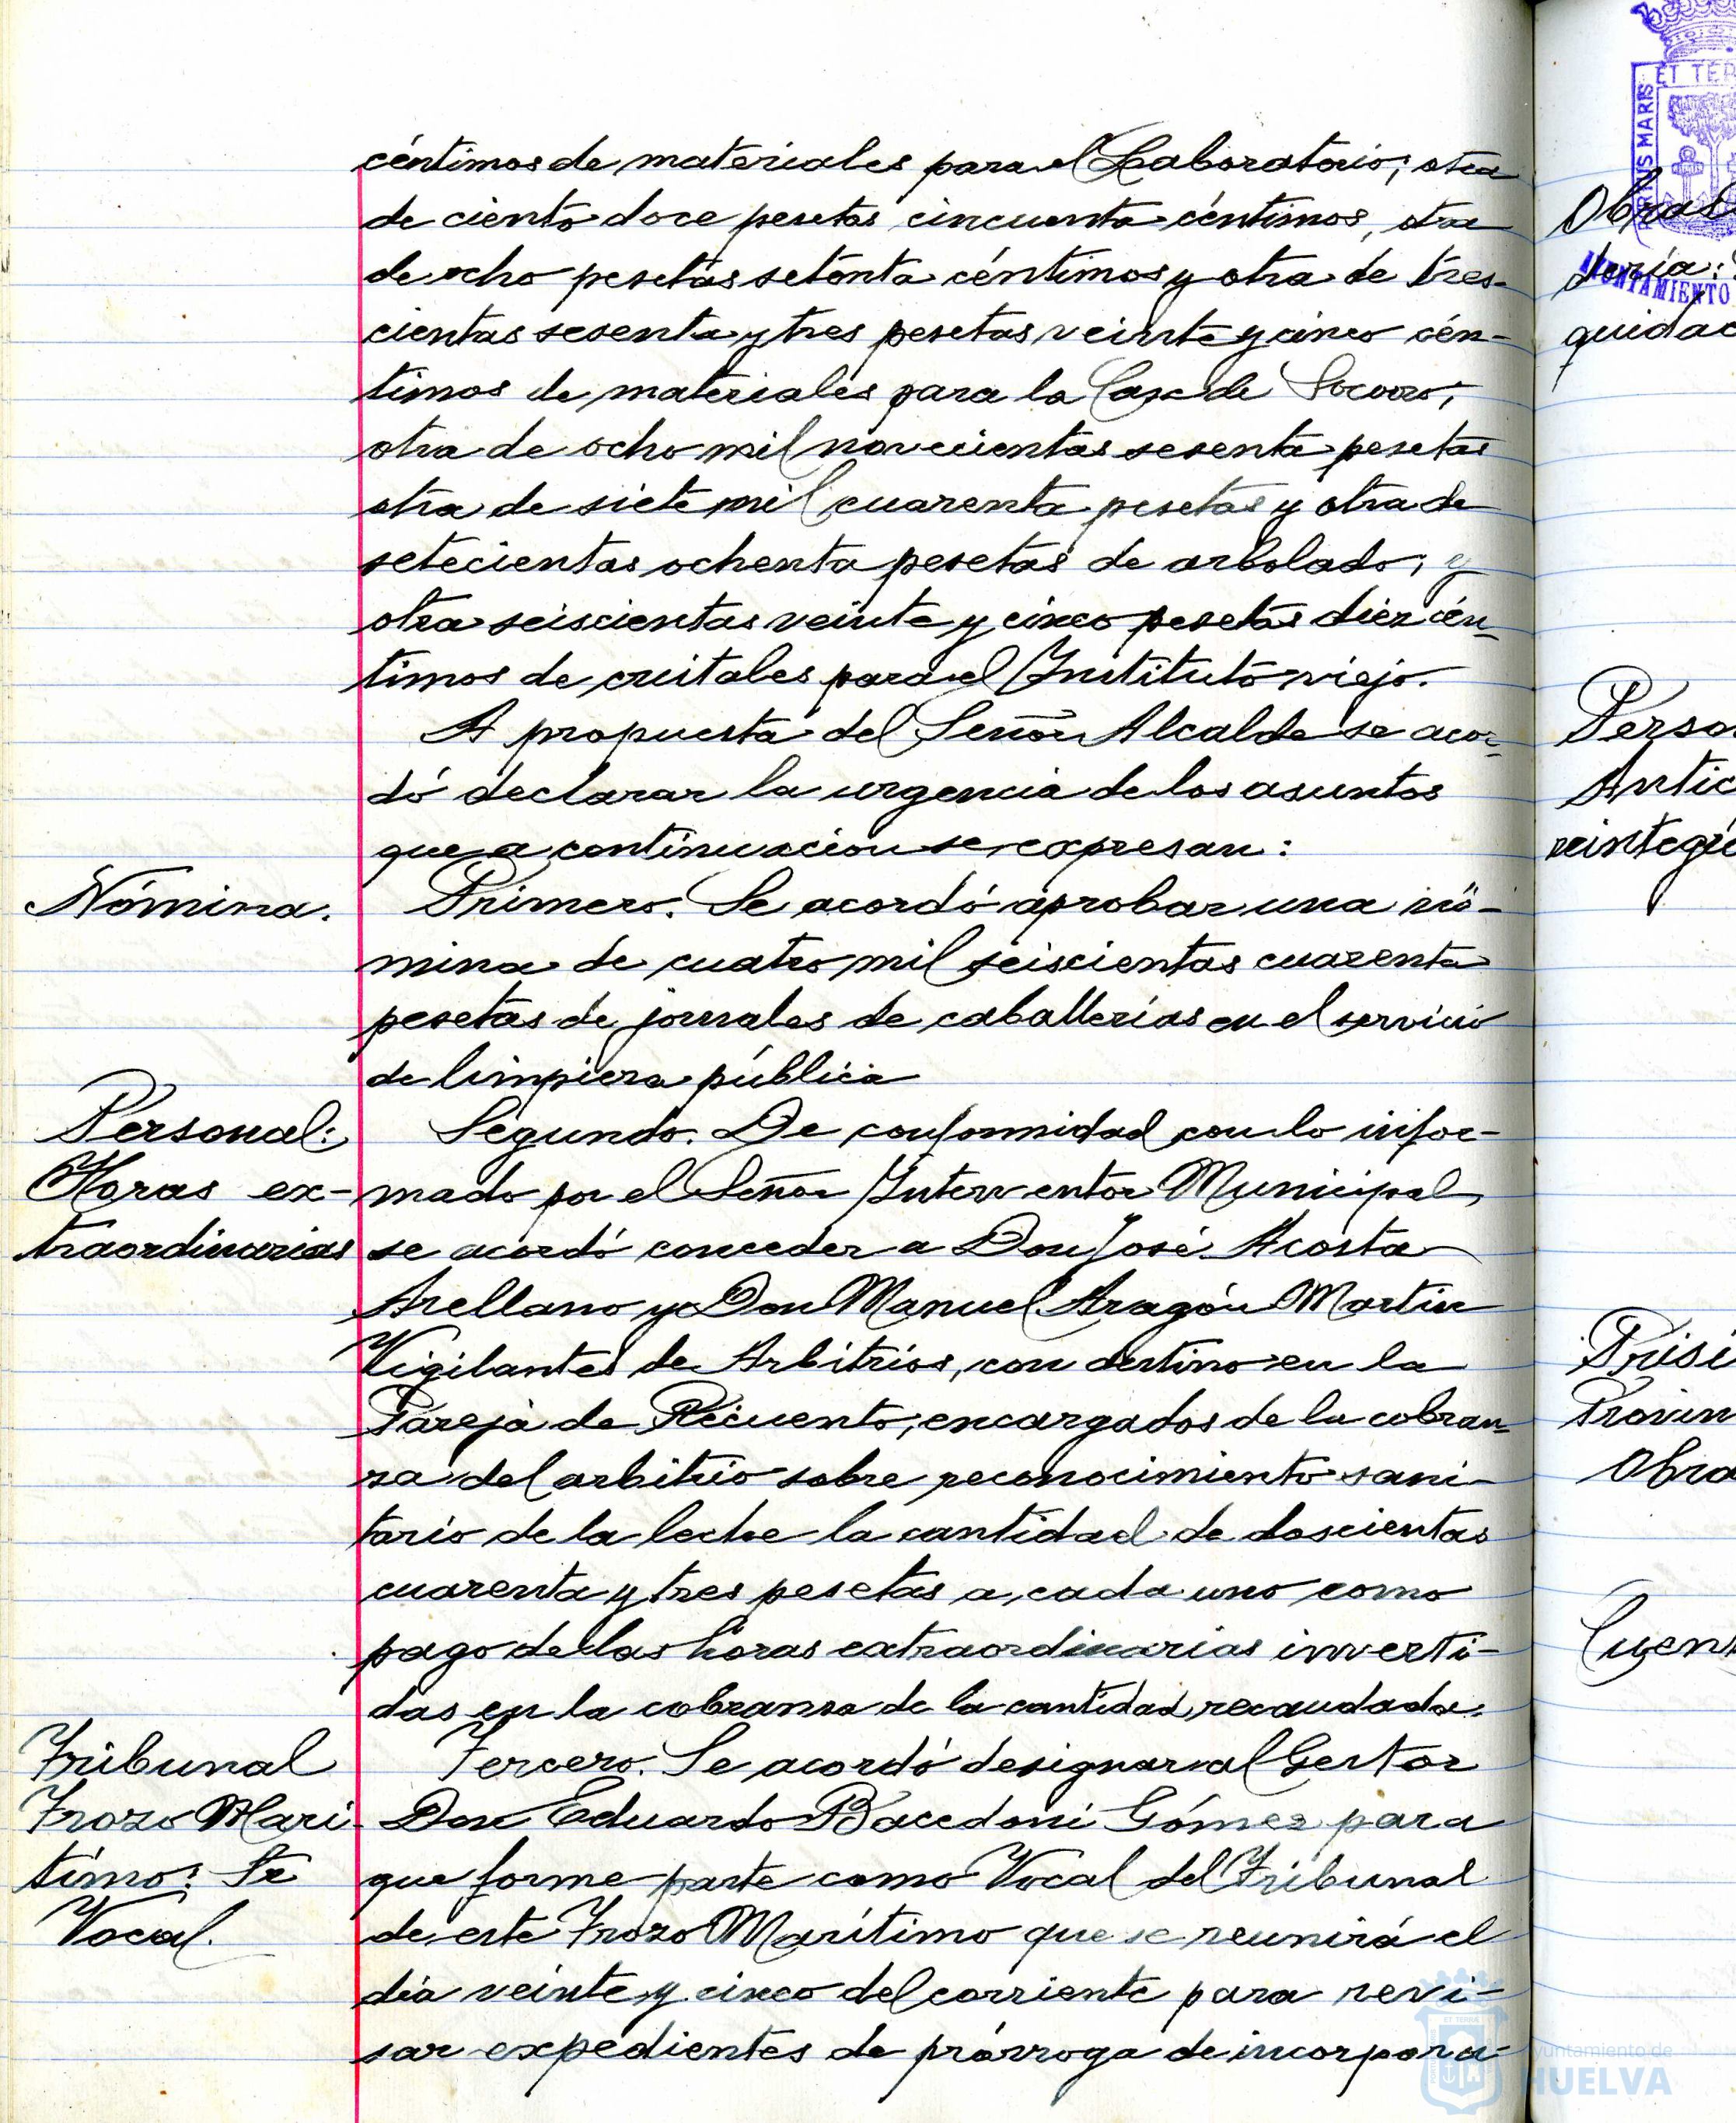 céntimos de materiales para el Laboratorio; otra
de ciento doce pesetas cincuenta céntimos, otra
de ocho pesetas setenta céntimos y otra de tres-
cientas sesenta y tres pesetas veinte y cinco cén-
timos de materiales para la Casa de Socorro;
otra de ocho mil novecientas sesenta pesetas
otra de siete mil cuarenta pesetas y otra de
setecientas ochenta pesetas de arbolado; y
otra seiscientas veinte y cinco pesetas diez cén-
timos de cristales para el Instituto viejo.
A propuesta del Señor Alcalde se acor-
dó declarar la urgencia de los asuntos
que a continuacion se expresan:
Nómina.
Primero. Se acordó aprobar una nó-
mina de cuatro mil seiscientas cuarenta
pesetas de jornales de caballerias en el servicio
de limpieza pública
Personal:
Horas ex-
traordinarias
Segundo. De conformidad con lo infor-
mado por el Señor Interventor Municipal,
se acordó conceder a Don José Acosta
Arellano y Don Manuel Aragón Martin
Vigilantes de Arbitrios, con destino en la
Pareja de Recuento, encargados de la cobran-
za del arbitrio sobre reconocimiento sani-
tario de la leche la cantidad de doscientas
cuarenta y tres pesetas a cada uno como
pago de las horas extraordinarias inverti-
das en la cobranza de la cantidad recaudada.
Tribunal
Trozo Mari
timo: Se
Vocal.
Tercero. Se acordó designar al Gestor
Don Eduardo Bacedoni Gómez para
que forme parte como Vocal del Tribunal
de este Trozo Marítimo que se reunirá el
día veinte y cinco del corriente para revi-
sar expedientes de prórroga de incorpora-
ET TER
PORTUS MARIS
AYUNTAMIENTO
Obras
quidac
Perso
Antic
reintegr
Prisi
Provin
Obra
Cuen
Ayuntamiento de
HUELVA